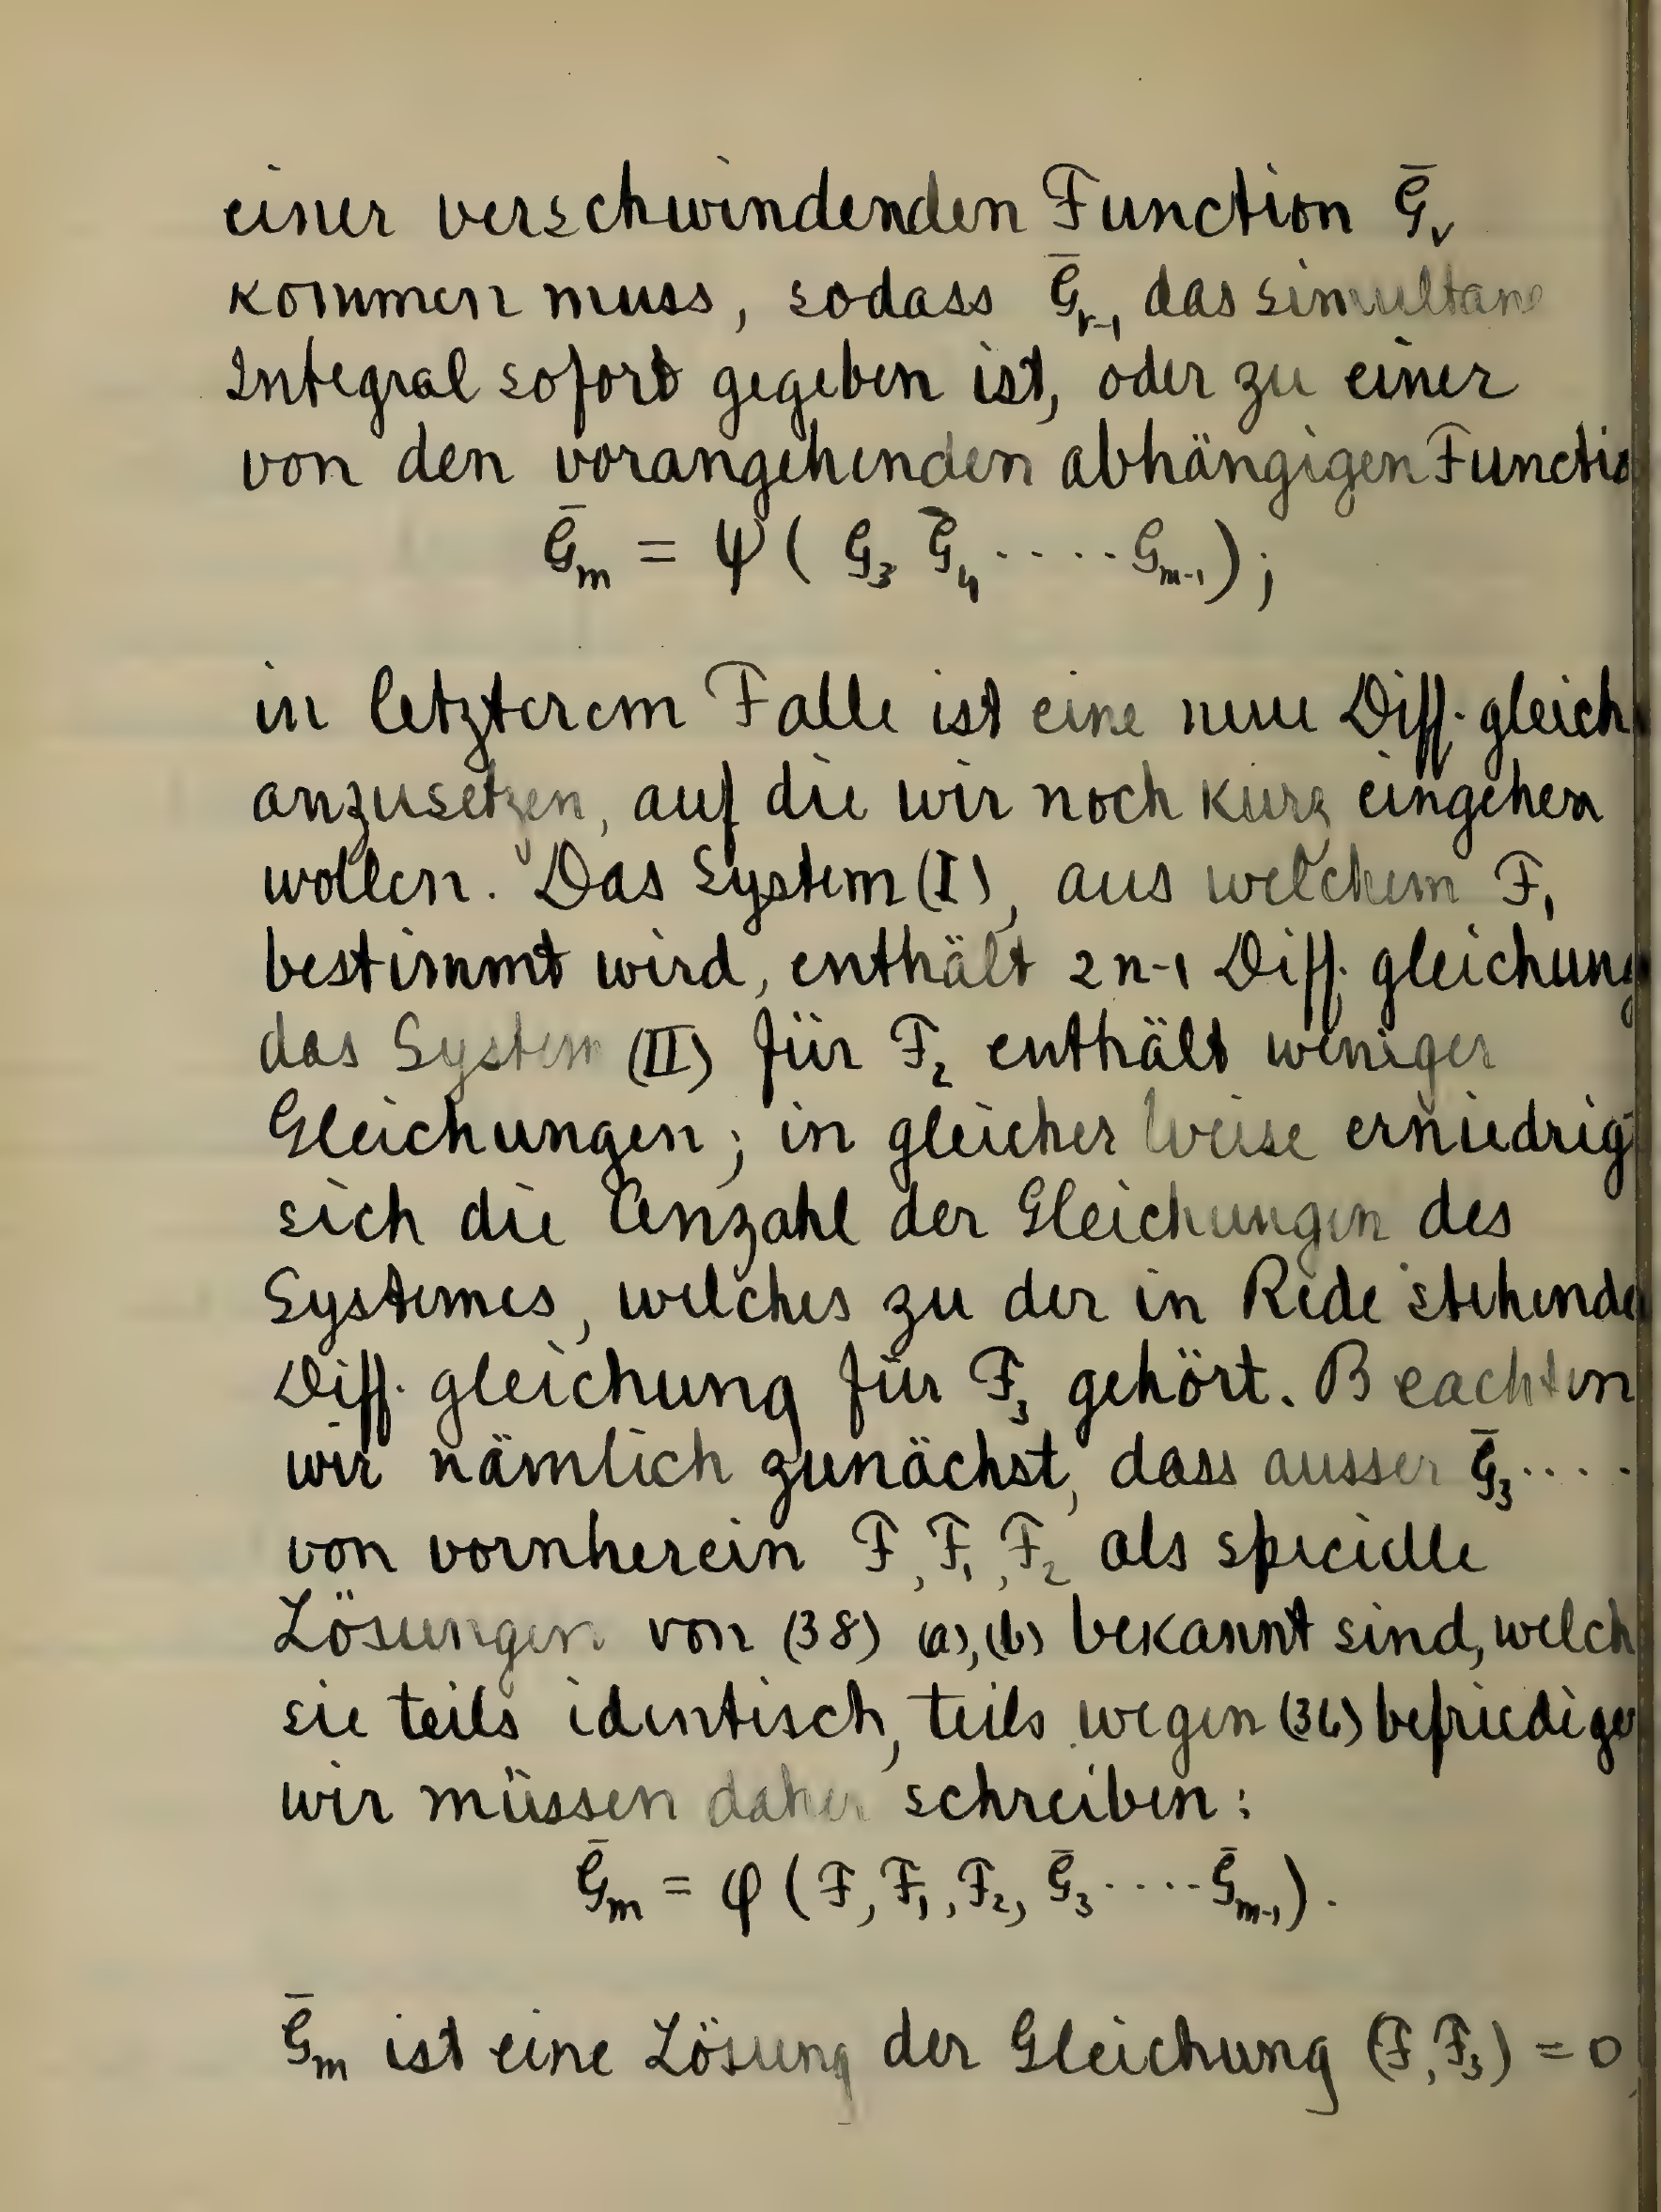 einer verschwindenden Function Ḡᵥ
kommen muss, sodass Ḡᵣ₋₁ das simultane
Integral sofort gegeben ist, oder zu einer
von den vorangehenden abhängigen Functio
Ḡₘ = ψ ( G₃ Ḡ₄ ····· Gₘ₋₁) ;
in letzterem Falle ist eine neue Diff. gleich
anzusetzen, auf die wir noch kurz eingehen
wollen. Das System (I), aus welchem F₁
bestimmt wird, enthält 2n-1 Diff. gleichung
das System (II) für F₂ enthält weniger
Gleichungen; in gleicher Weise erniedrigt
sich die Anzahl der Gleichungen des
Systemes, welches zu der in Rede stehende
Diff. gleichung für F₃ gehört. Beachten
wir nämlich zunächst, dass ausser Ḡ₃ ····
von vornherein F, F₁, F₂ als specielle
Lösungen von (38) (a), (b) bekannt sind, welch
sie teils identisch, teils wegen (36) befriedige
wir müssen daher schreiben:
Ḡₘ = φ (F, F₁, F₂, Ḡ₃ ····· Ḡₘ₋₁).
Ḡₘ ist eine Lösung der Gleichung (F, F₃) = 0,